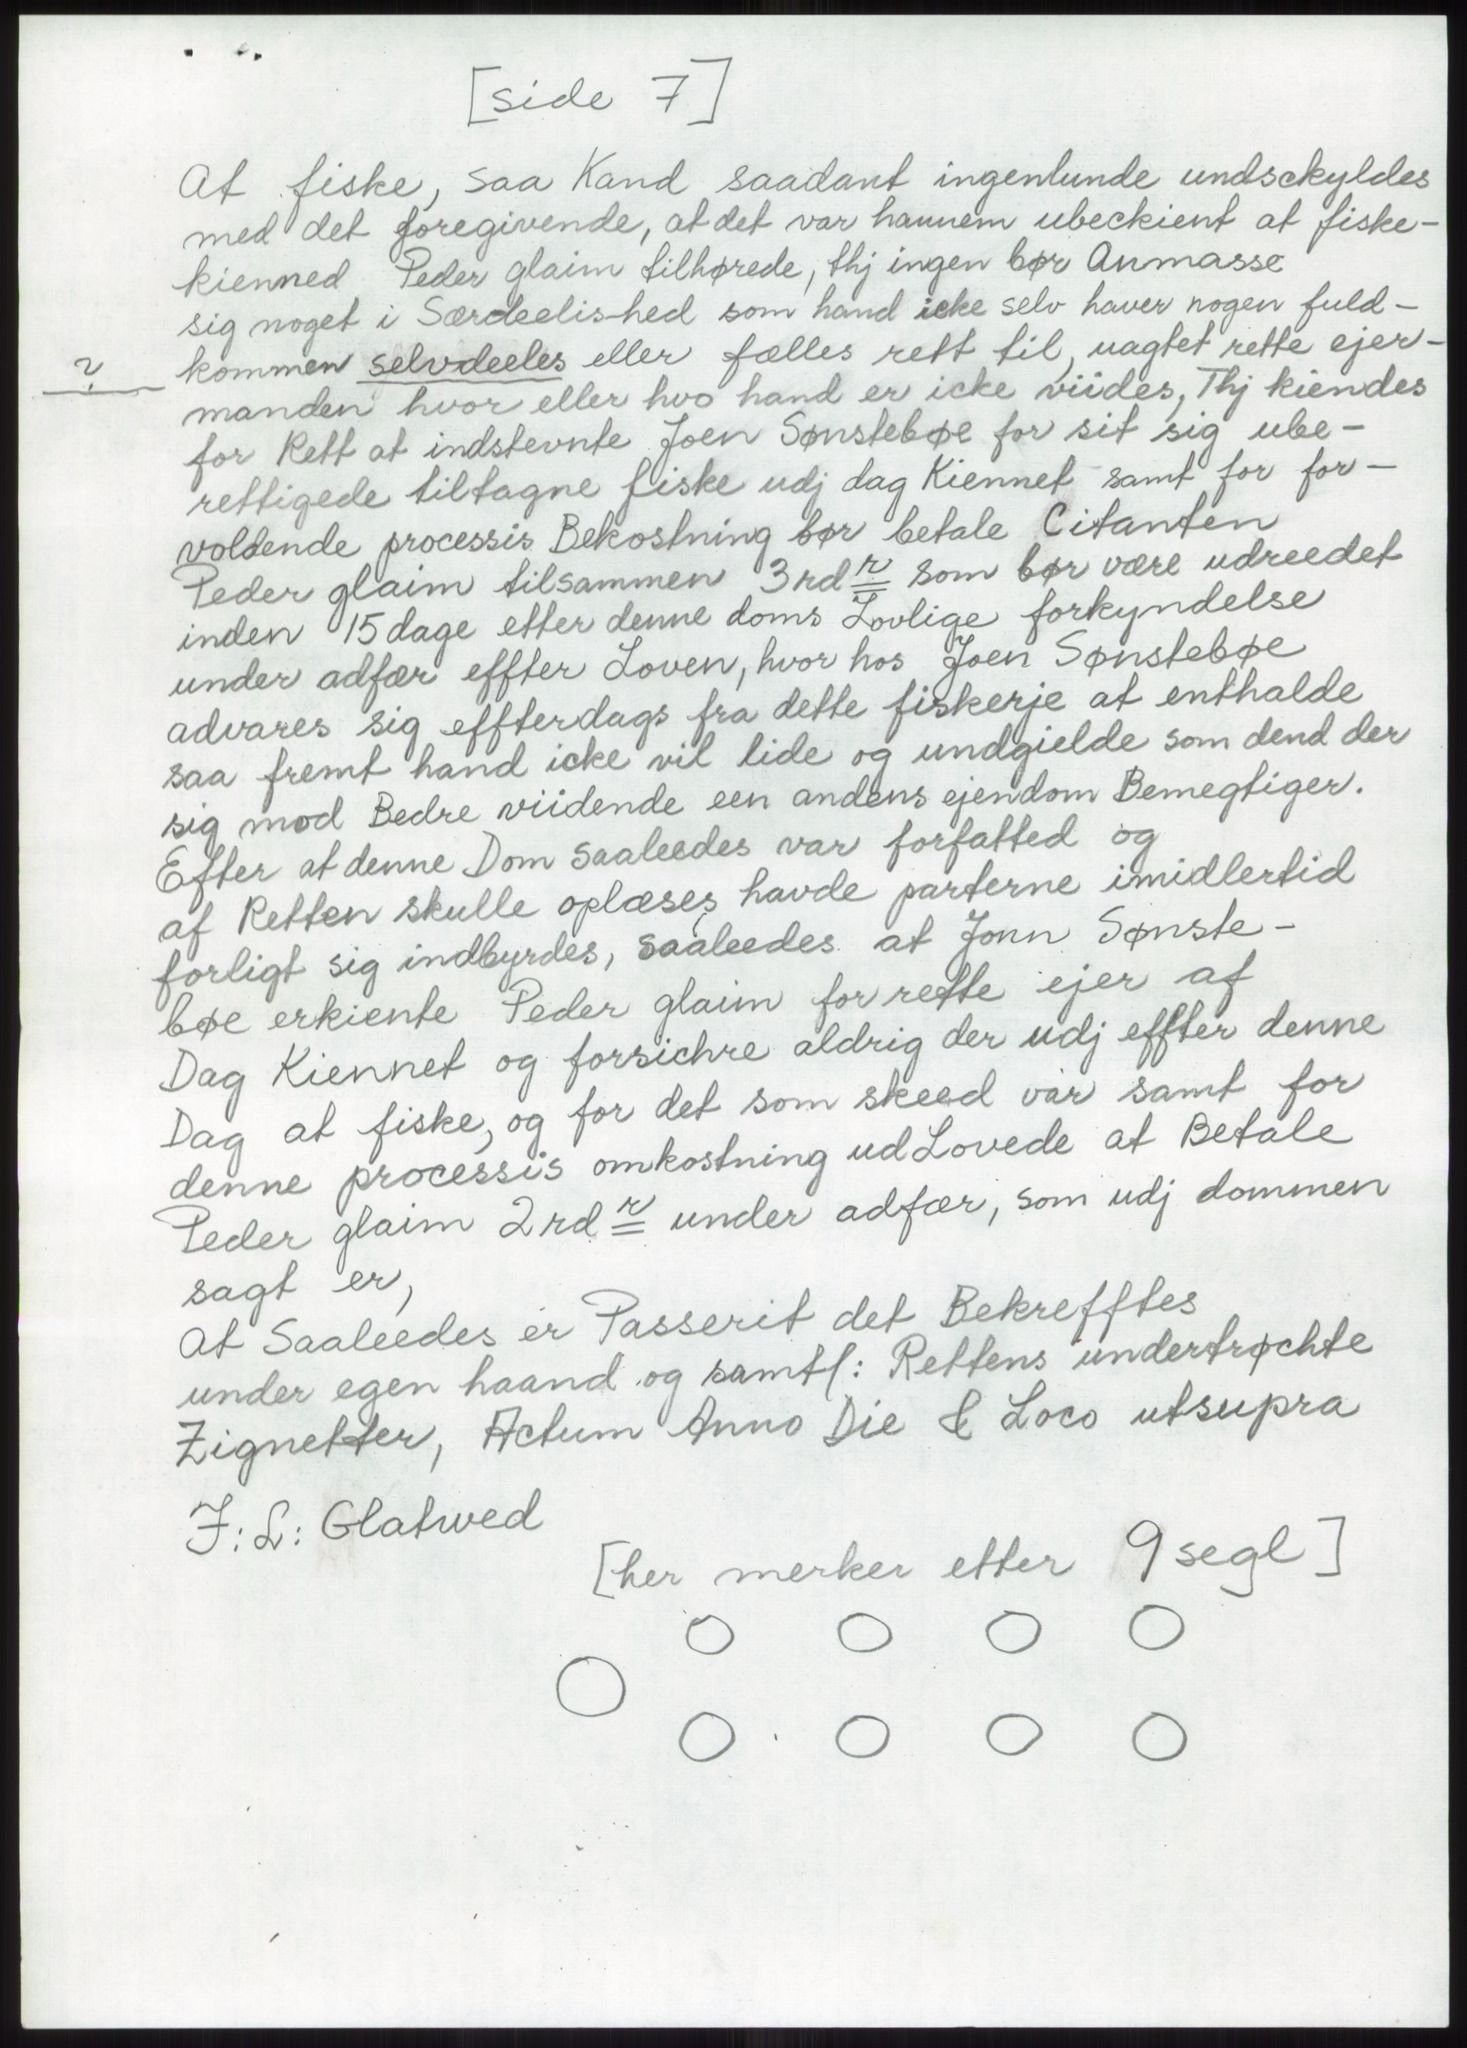 [side 7]
At fiske, saa Kand saadant ingenlunde undsckyldes
med det foregivende, at det var hannem ubeckient at fiske-
kienned Peder glaim tilhørede, thj ingen bør Anmasse
sig noget i Særdeelis-hed som hand icke selv haver nogen fuld-
? kommen selvdeeles eller fælles rett til, uagtet rette ejer-
manden hvor eller hvo hand er icke viides, Thj kiendes
for Rett at indstevnte Joen Sønstebøe for sit sig ube-
rettigede tiltagne fiske udj dag Kiennet samt for for-
voldende processis Bekostning bør betale Citanten
Peder glaim tilsammen 3 rdr som bør være udreedet
inden 15 dage etter denne doms Lovlige forkyndelse
under adfær effter Loven, hvor hos Joen Sønstebøe
advares sig effterdags fra dette fiskerje at entholde
saa fremt hand icke vil lide og undgielde som dend der
sig mod Bedre viidende een andens ejendom Bemegtiger.
Efter at denne Dom saaleedes var forfatted og
af Retten skulle oplæses, havde parterne imidlertid
forligt sig indbyrdes, saaleedes at Jonn Sønste-
bøe erkiente Peder glaim for rette ejer af
Dag Kiennet og forsichre aldrig der udj effter denne
Dag at fiske, og for det som skeed var samt for
denne processis omkostning udLovede at Betale
Peder glaim 2 rdr under adfær, som udj dommen
sagt er,
At Saaleedes er Passerit det Bekrefftes
under egen haand og samtl: Rettens undertrøchte
Zignetter, Actum Anno Die & Loco utsupra
J: L: Glatwed
[her merker etter 9 segl]